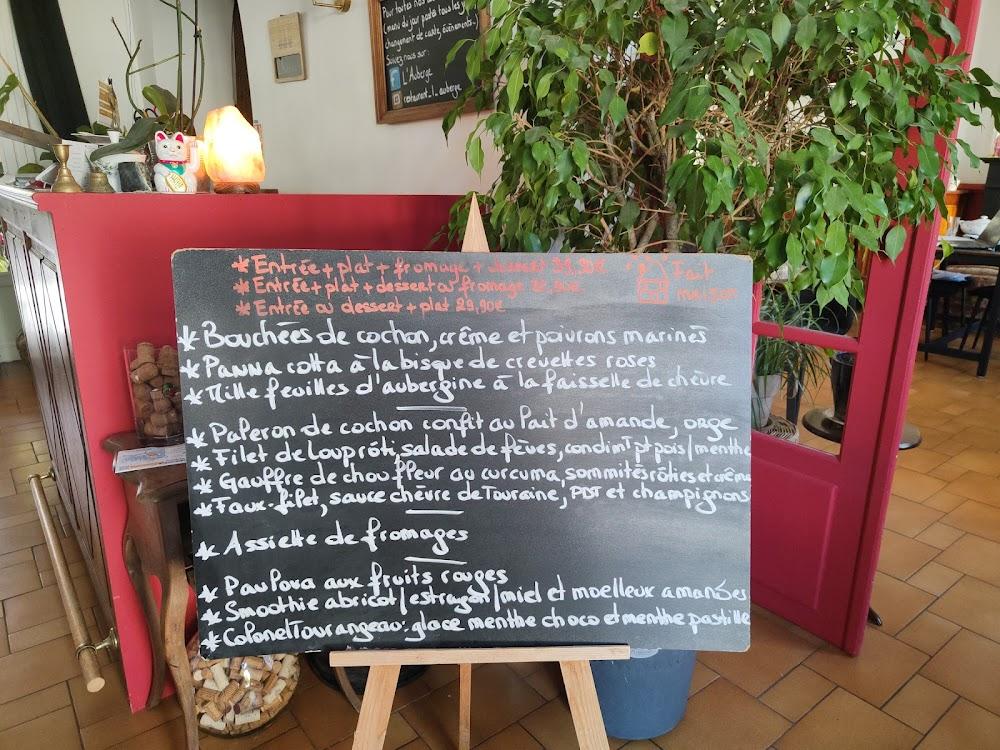 Pour toutes nos
(menu du jour postés tous les
changement de carte, évènements..
Suivez nous sur:
L'Auberge
restaurant_l_auberge
* Entrée + plat + fromage + dessert 39,90€
* Entrée + plat + dessert ou fromage 32,90€
* Entrée ou dessert + plat 29,90€
Fait
maison
* Bouchées de cochon, crême et poivrons marinés
* Panna cotta à la bisque de crevettes roses
* Mille feuilles d'aubergine à la faisselle de chèvre
* Paleron de cochon confit au lait d'amande, orge
* Filet de loup rôti, salade de fèves, condimt pt pois/menthe
* Gauffre de chou fleur au curcuma, sommités rôties et crême
* Faux-filet, sauce chèvre de Touraine, PDT et champignons
* Assiette de fromages
* Pavlova aux fruits rouges
* Smoothie abricot/estragon/miel et moelleux amandes
* Colonel Tourangeau: glace menthe choco et menthe pastille